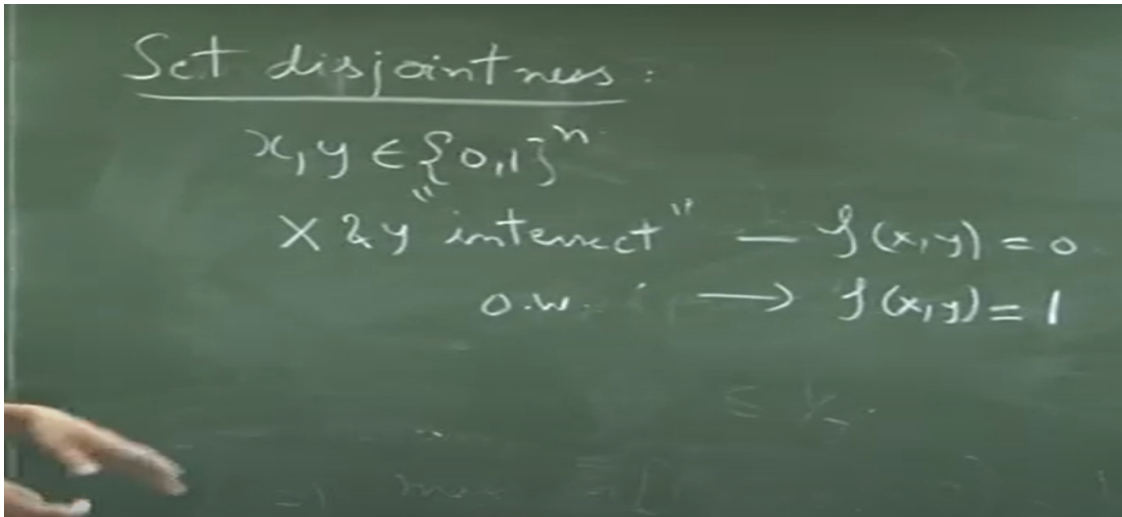 Set disjointness :
x, y ∈ {0,1}^n
X & y "intersect" — f(x,y) = 0
o.w. → f(x,y) = 1